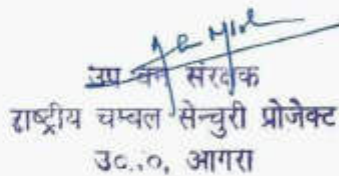 उप वन संरक्षक
राष्ट्रीय चम्बल सेन्चुरी प्रोजेक्ट
उ०.०, आगरा